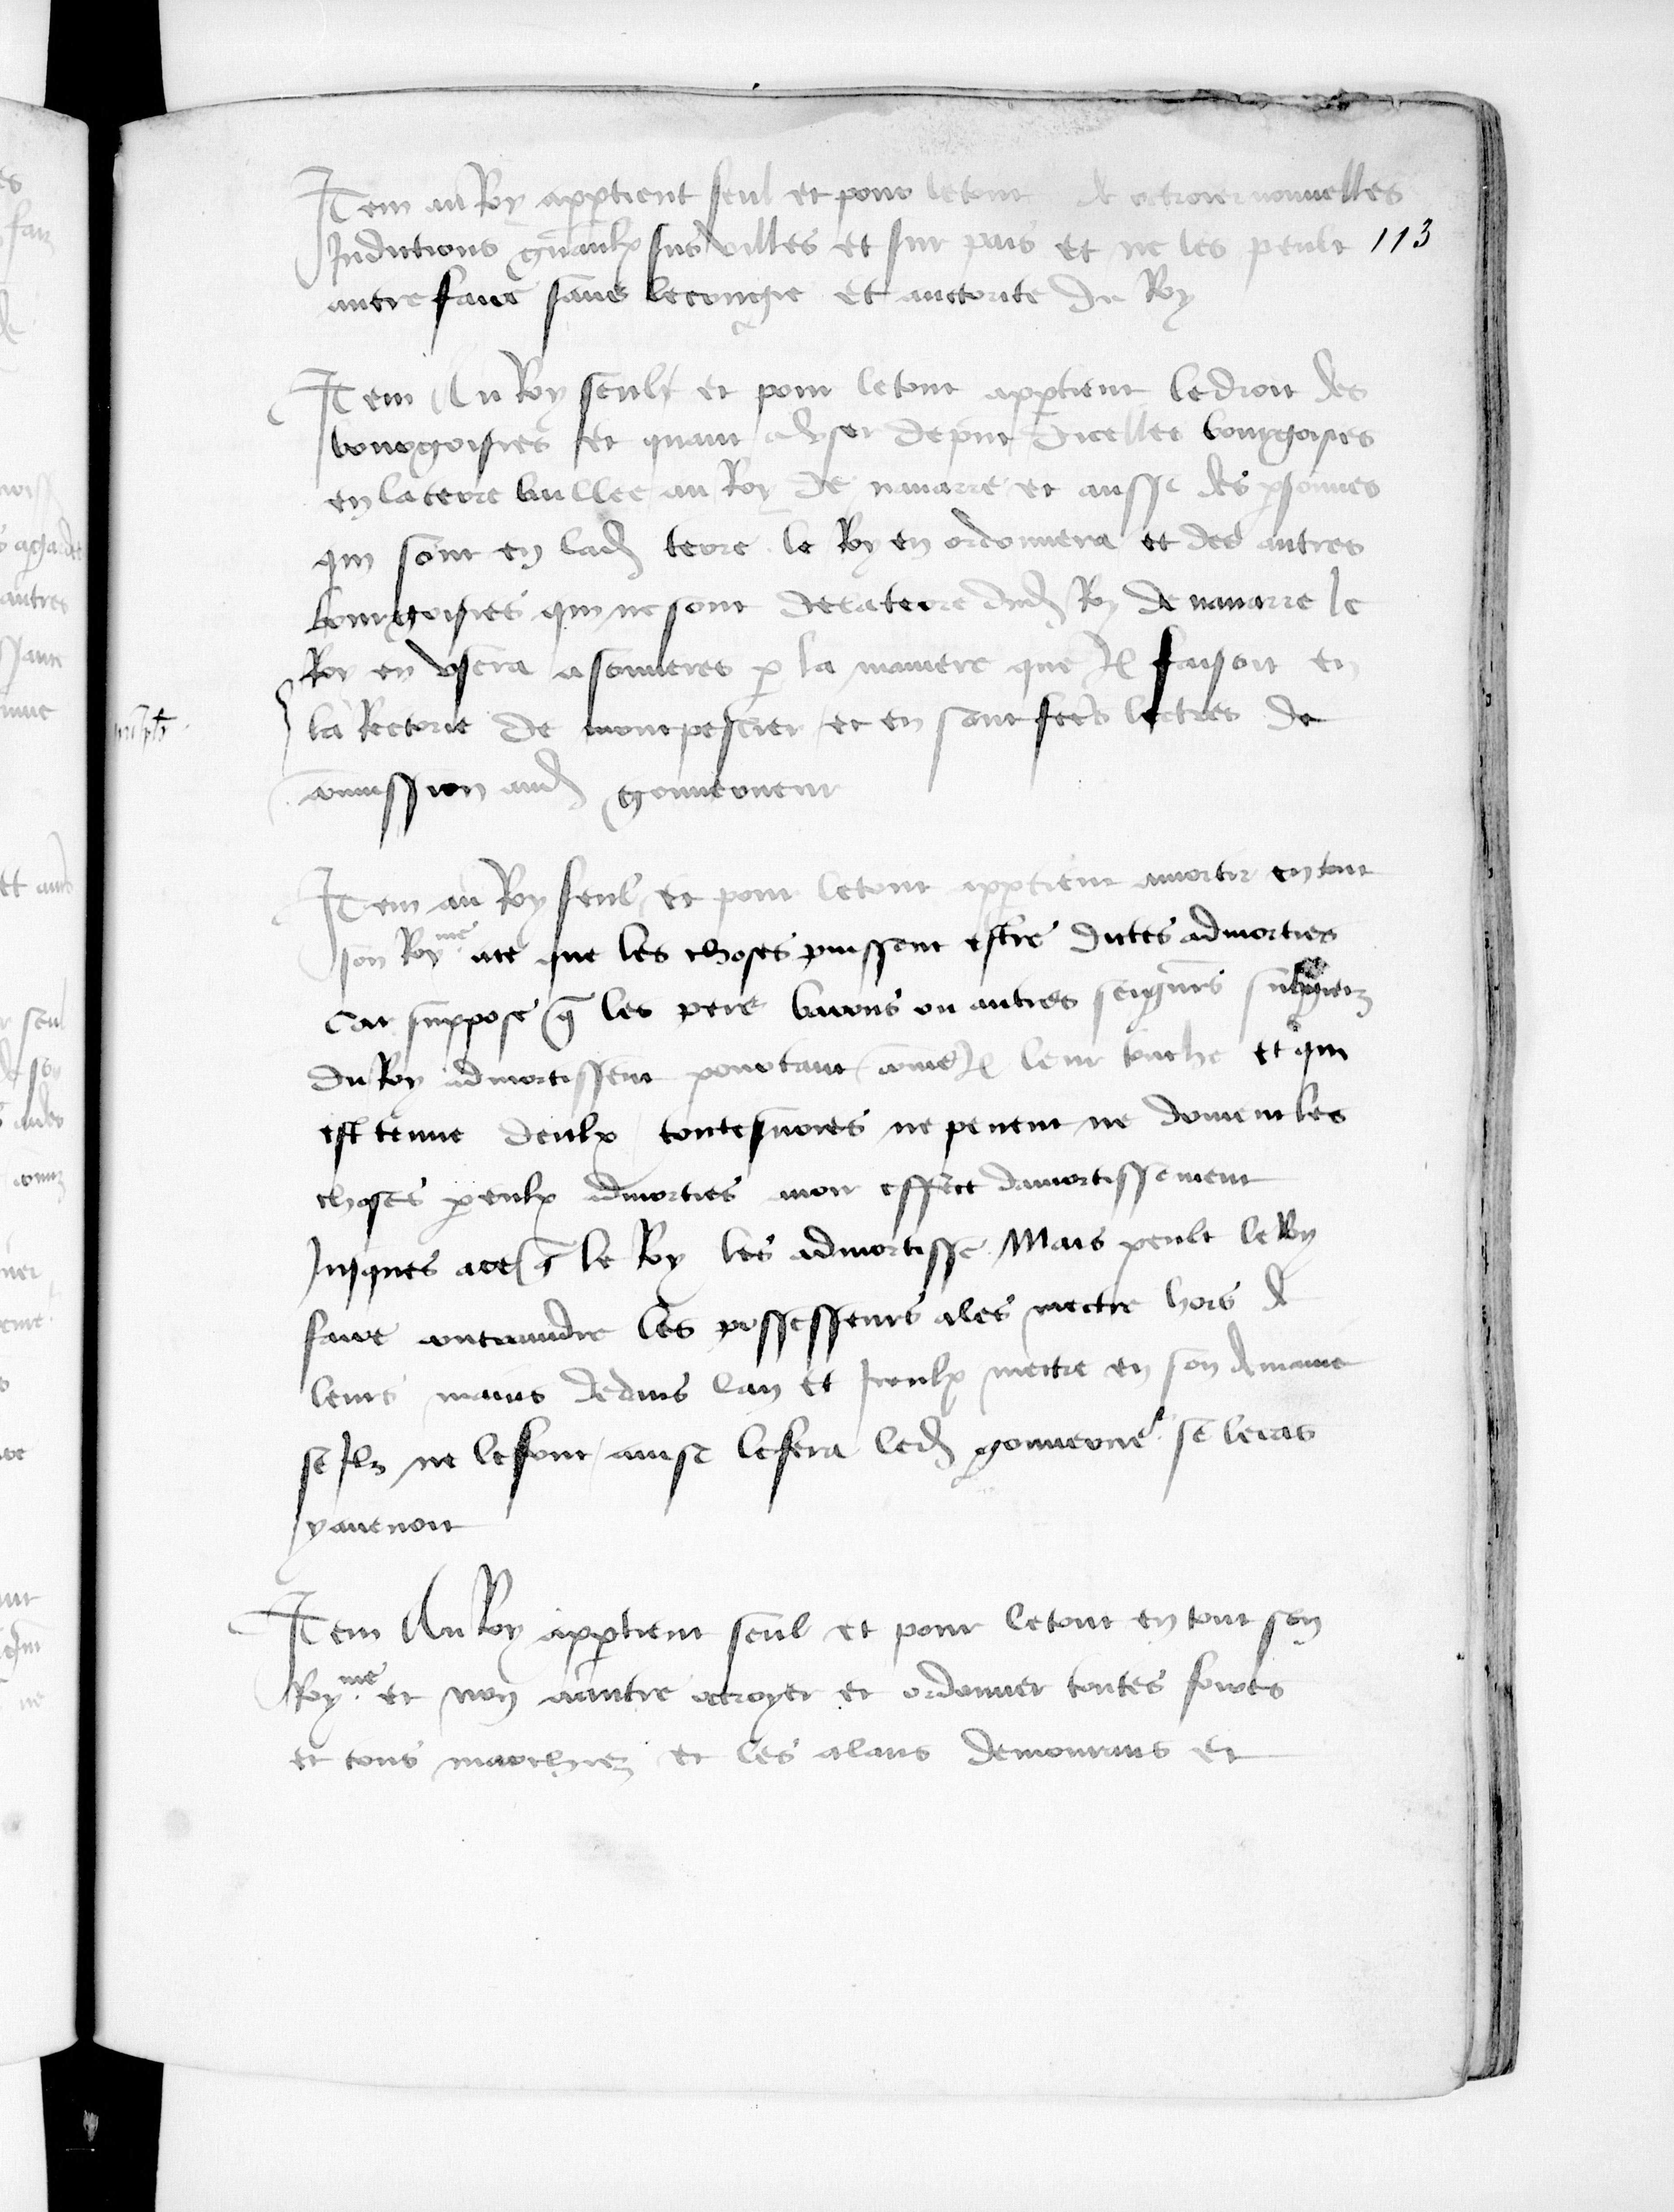 Item au Roy appartient seul et pour letout de octroier nouuelles
Indictions gnaulx sus villes et sur pais et ne les peult 113
autre faire sans le congie et auctorite du Roy
Item Au Roy seul et pour letout appartient ledroit des
bourgoisies et quant a vser depnt dicelles bourgoisies
en laterre baillee au Roy de nauarre et aussi des psonnes
qui sont en lad terre le Roy en ordonnera et des autres
bourgoisies qui ne sont delaterre dud Roy de nauarre le
Roy en vsera a sommeres p la maniere que Il faisoit en
la Rectorie de montpeslier et en sont fces lectres de
commission aud gouuerneur
Item au Roy seul et pour letout appartient amortir en tout
son Royme ace que les choses puissent estre dictes admorties
Car suppose q les pers barons ou autres seigneurs subgiez
du Roy admortissent pour tant comme Il leur touche et qui
est tenue deulx toutesuoies ne peuent ne doiuent les
choses p eulx admorties auoir effect damortissement
Jusques ace q le Roy les admortisse Mais peult le Roy
faire contraindre les possesseurs ales mectre hors de
leurs mains dedens lan et Iceulx mectre en son demaine
se Ilz ne lefont ainsi lefera led gouuerner se le cas
y auenoit
Item Au Roy appartient seul et pour letout en tout son
Royme et non aautre octroyer et ordonner toutes foires
et tous marchiez et les alans demourans et